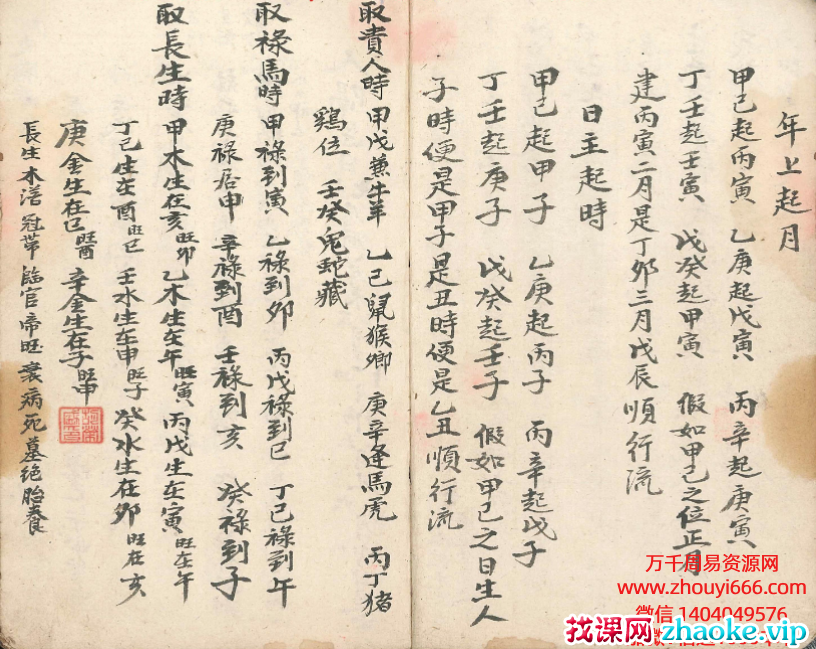 年上起月
甲己起丙寅 乙庚起戊寅 丙辛起庚寅
丁壬起壬寅 戊癸起甲寅 假如甲己之位正月
建丙寅二月是丁卯三月戊辰順行流
日主起時
甲己起甲子 乙庚起丙子 丙辛起戊子
丁壬起庚子 戊癸起壬子 假如甲己之日生人
子時便是甲子是丑時便是乙丑順行流
取貴人時 甲戊兼牛羊 乙己鼠猴鄉 庚辛逢馬虎 丙丁猪
鷄位 壬癸兔蛇藏
取祿馬時 甲祿到寅 乙祿到卯 丙戊祿到巳 丁己祿到午
庚祿居申 辛祿到酉 壬祿到亥 癸祿到子
取長生時 甲木生在亥旺卯 乙木生在午旺寅 丙戊生在寅旺在午
丁己生在酉旺巳 壬水生在申旺子 癸水生在卯旺在亥
庚金生在巳旺酉 辛金生在子旺申
長生沐浴冠帶臨官帝旺衰病死墓绝胎養
万千周易资源网
www.zhouyi666.com
微信 1404049576
找课网zhaoke.vip